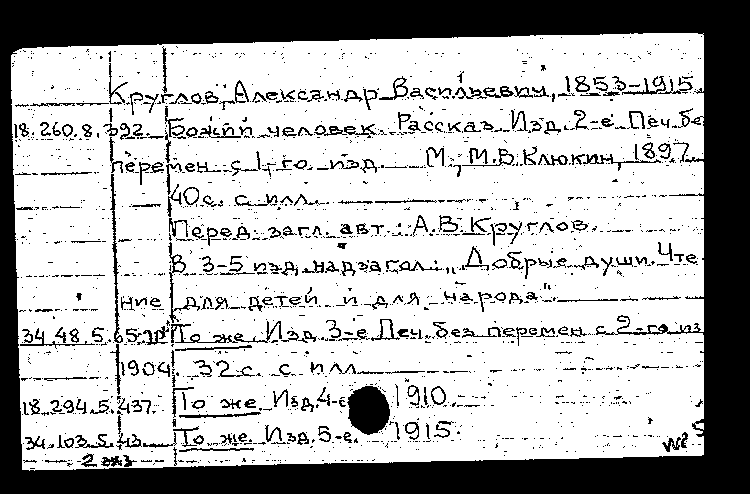 Круглов, Александр Васильевич, 1853-1915.
18.260.8.392. Божий человек. Рассказ. Изд. 2-е. Печ. бе
перемен с 1-го изд. М., М.В. Клюкин, 1897.
40с. с илл.
Перед загл. авт.: А.В. Круглов.
В 3-5 изд. надзагол.: „Добрые души. Чте-
ние для детей и для народа".
34.48.5.65 То же. Изд. 3-е. Печ. без перемен с 2-го из
1904. 32с. с илл.
18.294.5.437. То же. Изд. 4-е 1910.
34.103.5.43. То же. Изд. 5-е. 1915.
2 экз
№2 5